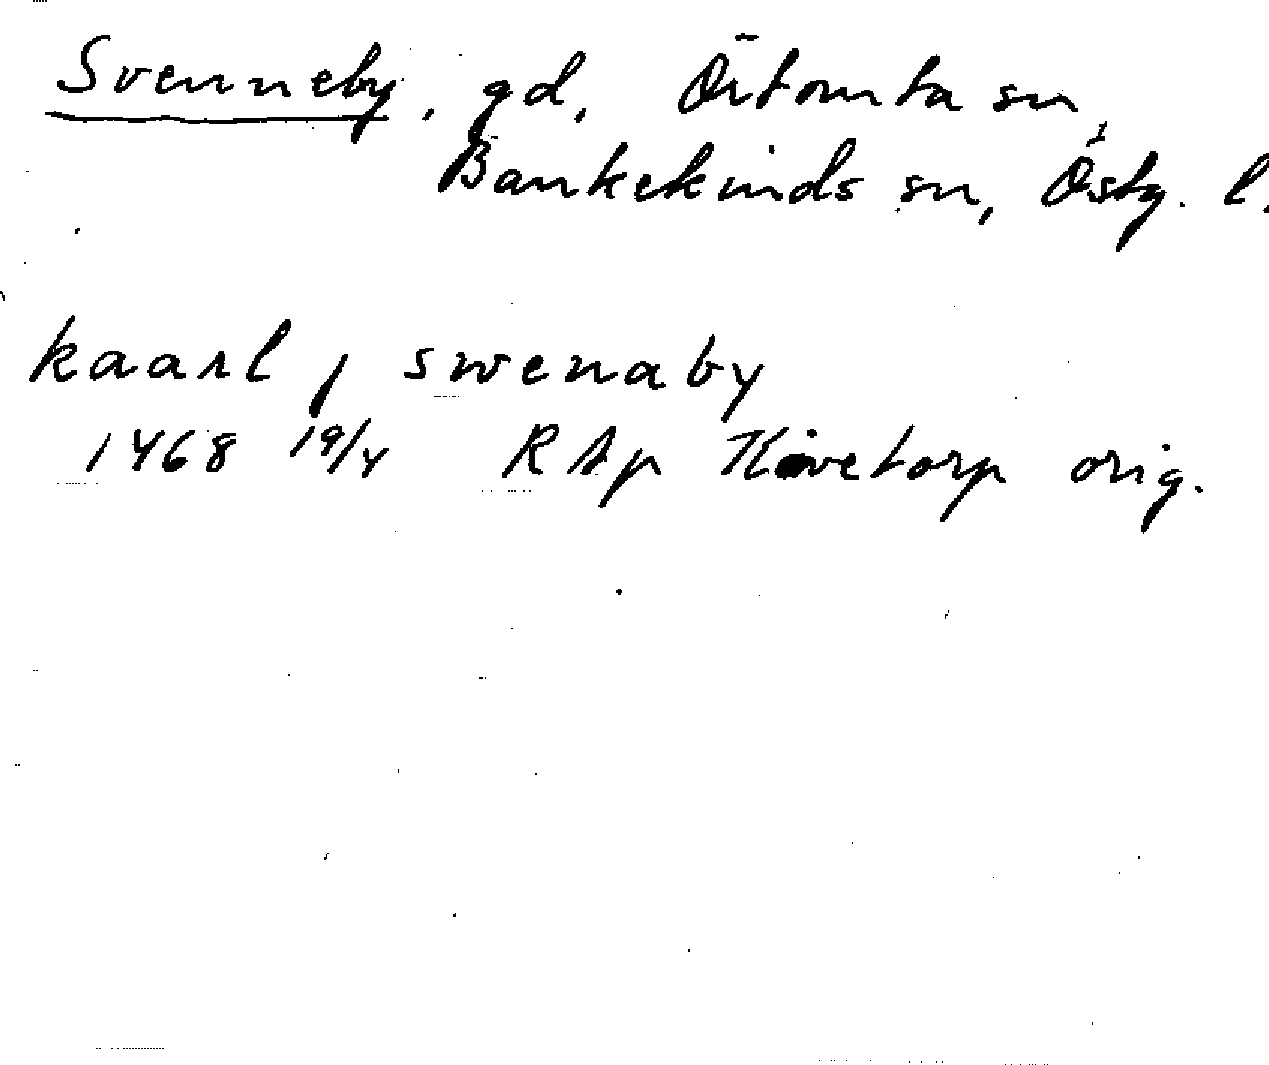 Svenneby, gd, Örtomta sn,
Bankekinds sn, Östg. l.
kaarl j swenaby
1468 19/4 RAp Kivetorp orig.